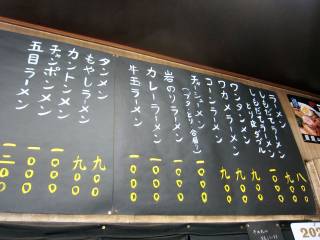 ラーメン 八〇〇
ラーメン 九〇〇
ダブル 一〇〇〇
ワンタンメン 九〇〇
ワカメラーメン 九〇〇
コーンラーメン 九〇〇
チャーシューメン 一〇〇〇
(ブタ・とり
岩のりラーメン 一〇〇〇
カレーラーメン 一〇〇〇
牛玉ラーメン 一〇〇〇
タンメン 九〇〇
もやしラーメン 九〇〇
カントンメン 一〇〇〇
チャンポンメン 一〇〇〇
五目ラーメン 一二〇〇